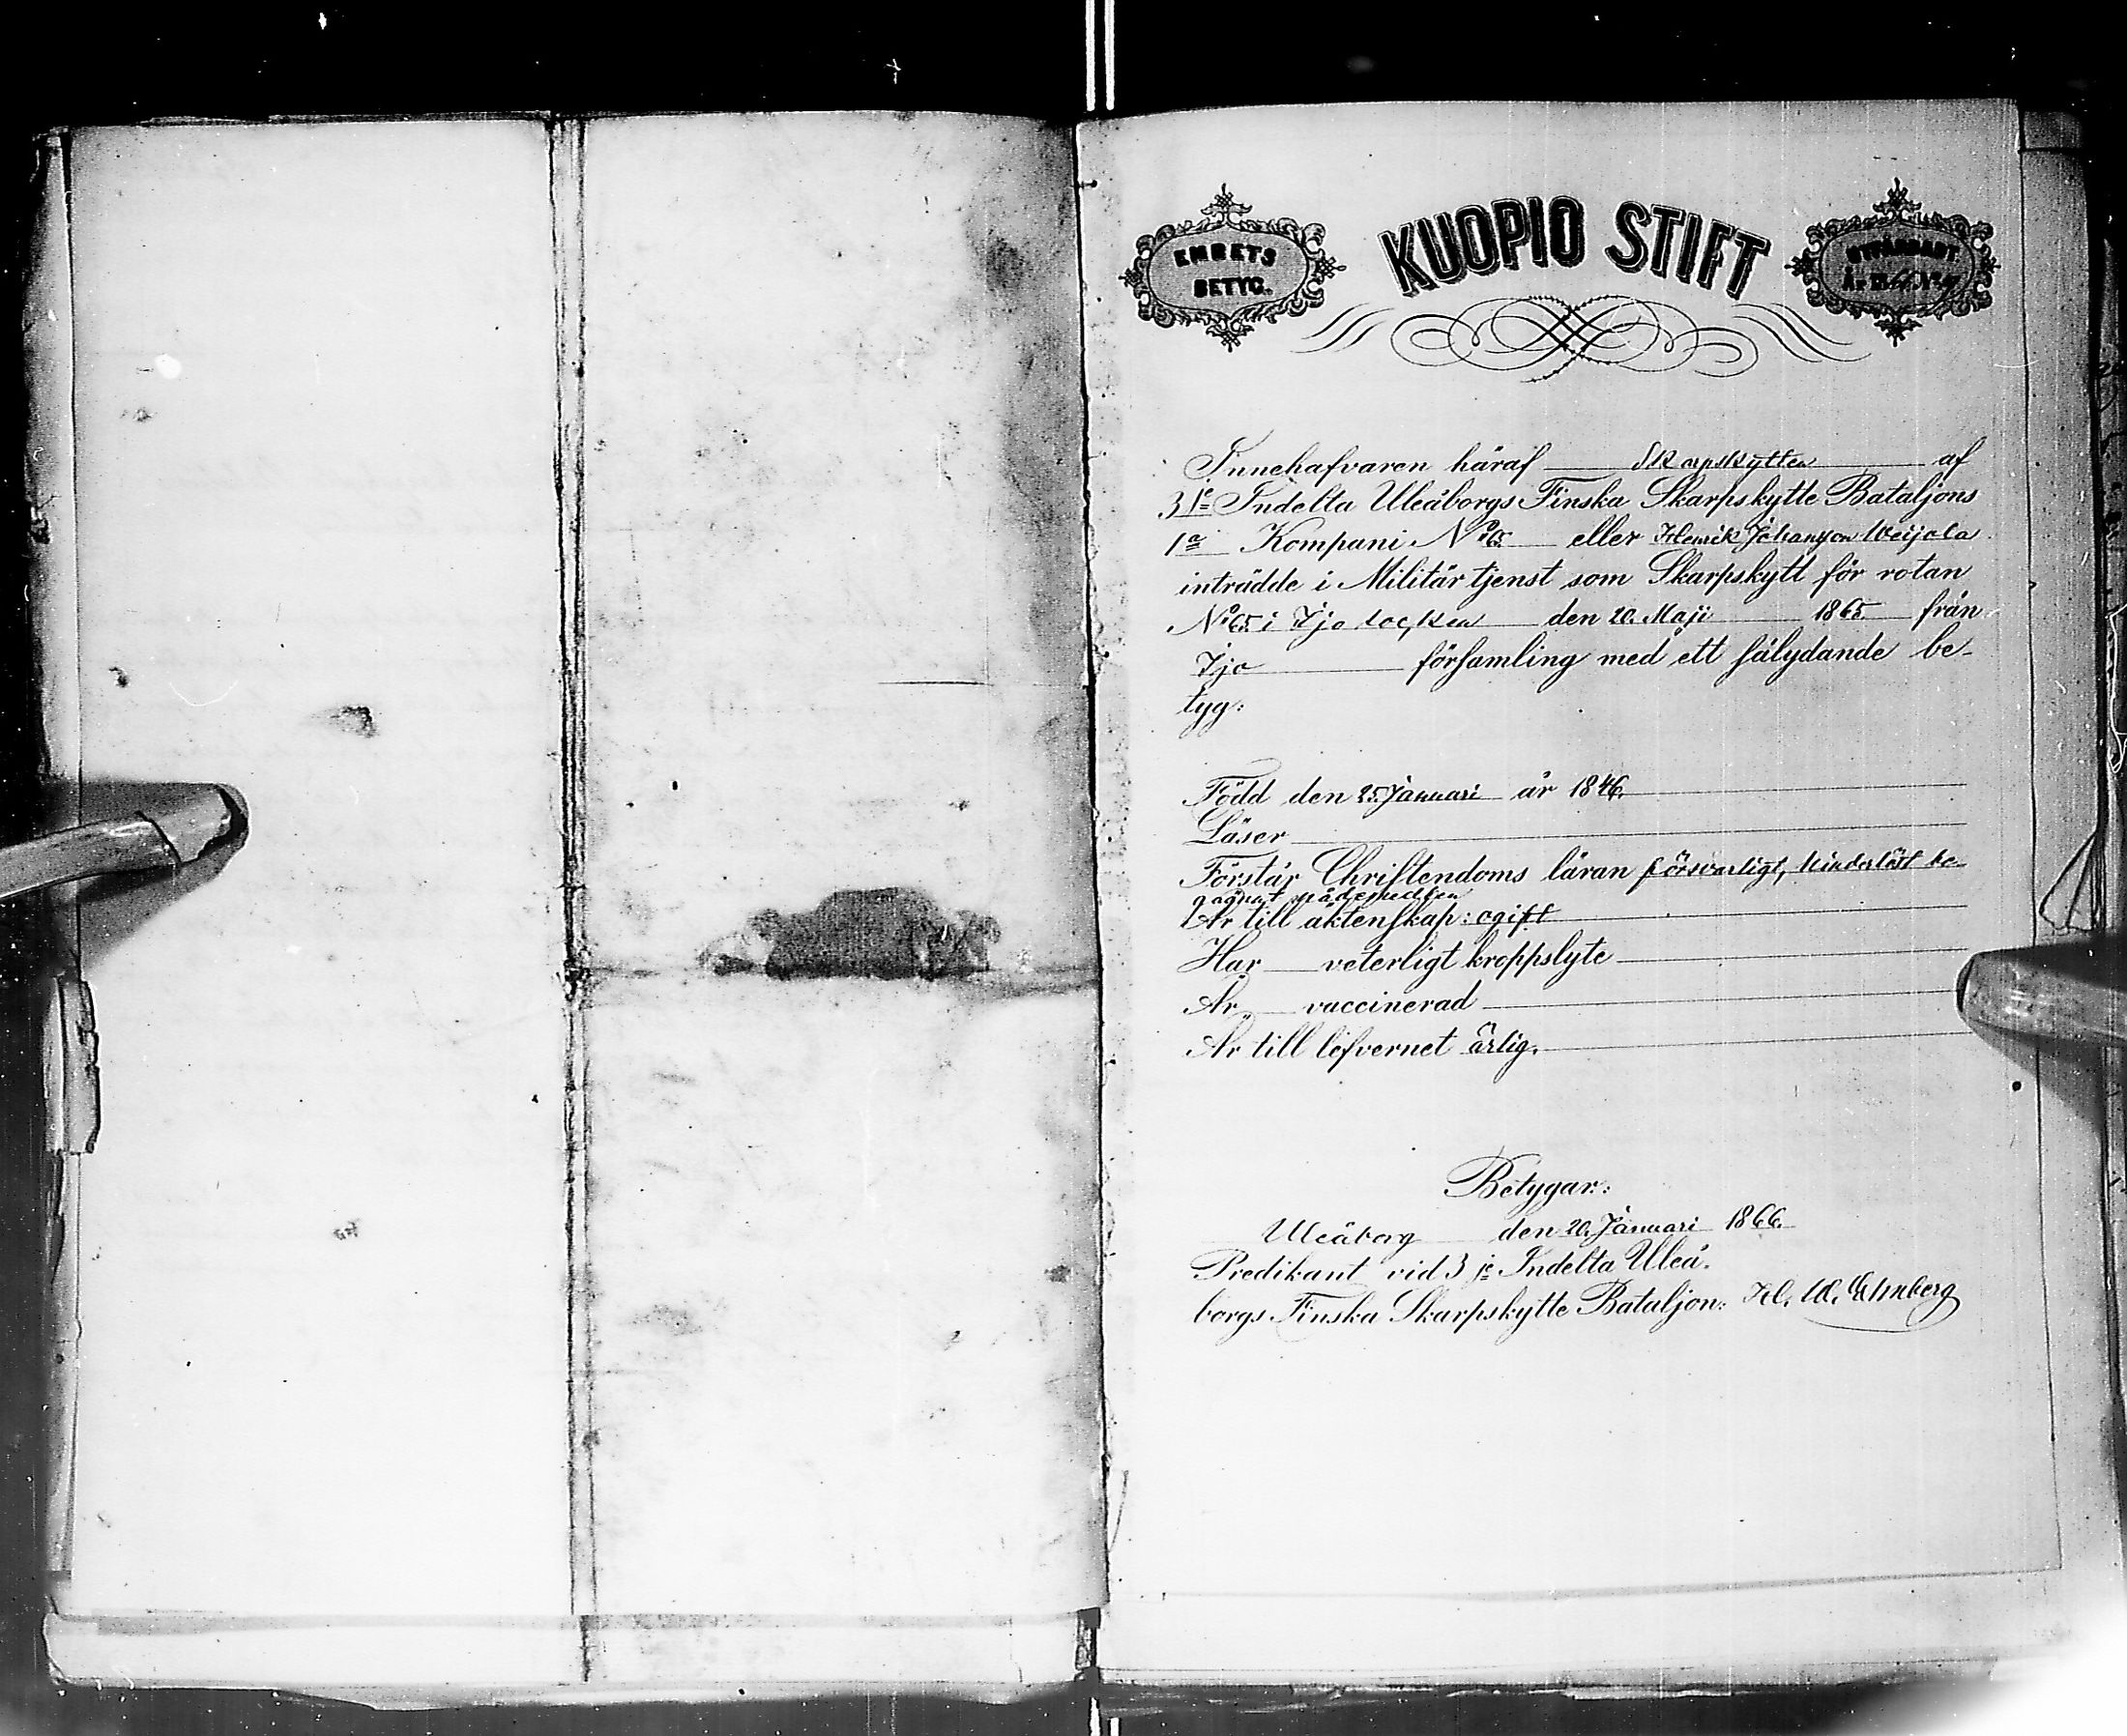 EMBETS
BETYG.
KUOPIO STIFT
UTFÄRDADT
År 1866 No
Innehafvaren häraf Skarpskytten af
3je Indelta Uleåborgs Finska Skarpskytte Bataljons
1a Kompani No 65. eller Henrik Johansson Weijola
inträdde i Militär tjenst som Skarpskytt för rotan
No 65 i Ijo socken den 20. Maji 1865. från
Ijo församling med ett sålydande be-
tyg:
Född den 25. Januari år 1846.
Läser
Förstår Christendoms läran försvarligt, hinderlöst be-
gagnat nådemedlen
Är till äktenskap: ogift
Har veterligt kroppslyte
Är vaccinerad
Är till lefvernet ärlig.
Betygar:
Uleåborg den 20. Januari 1866.
Predikant vid 3je Indelta Uleå-
borgs Finska Skarpskytte Bataljon: